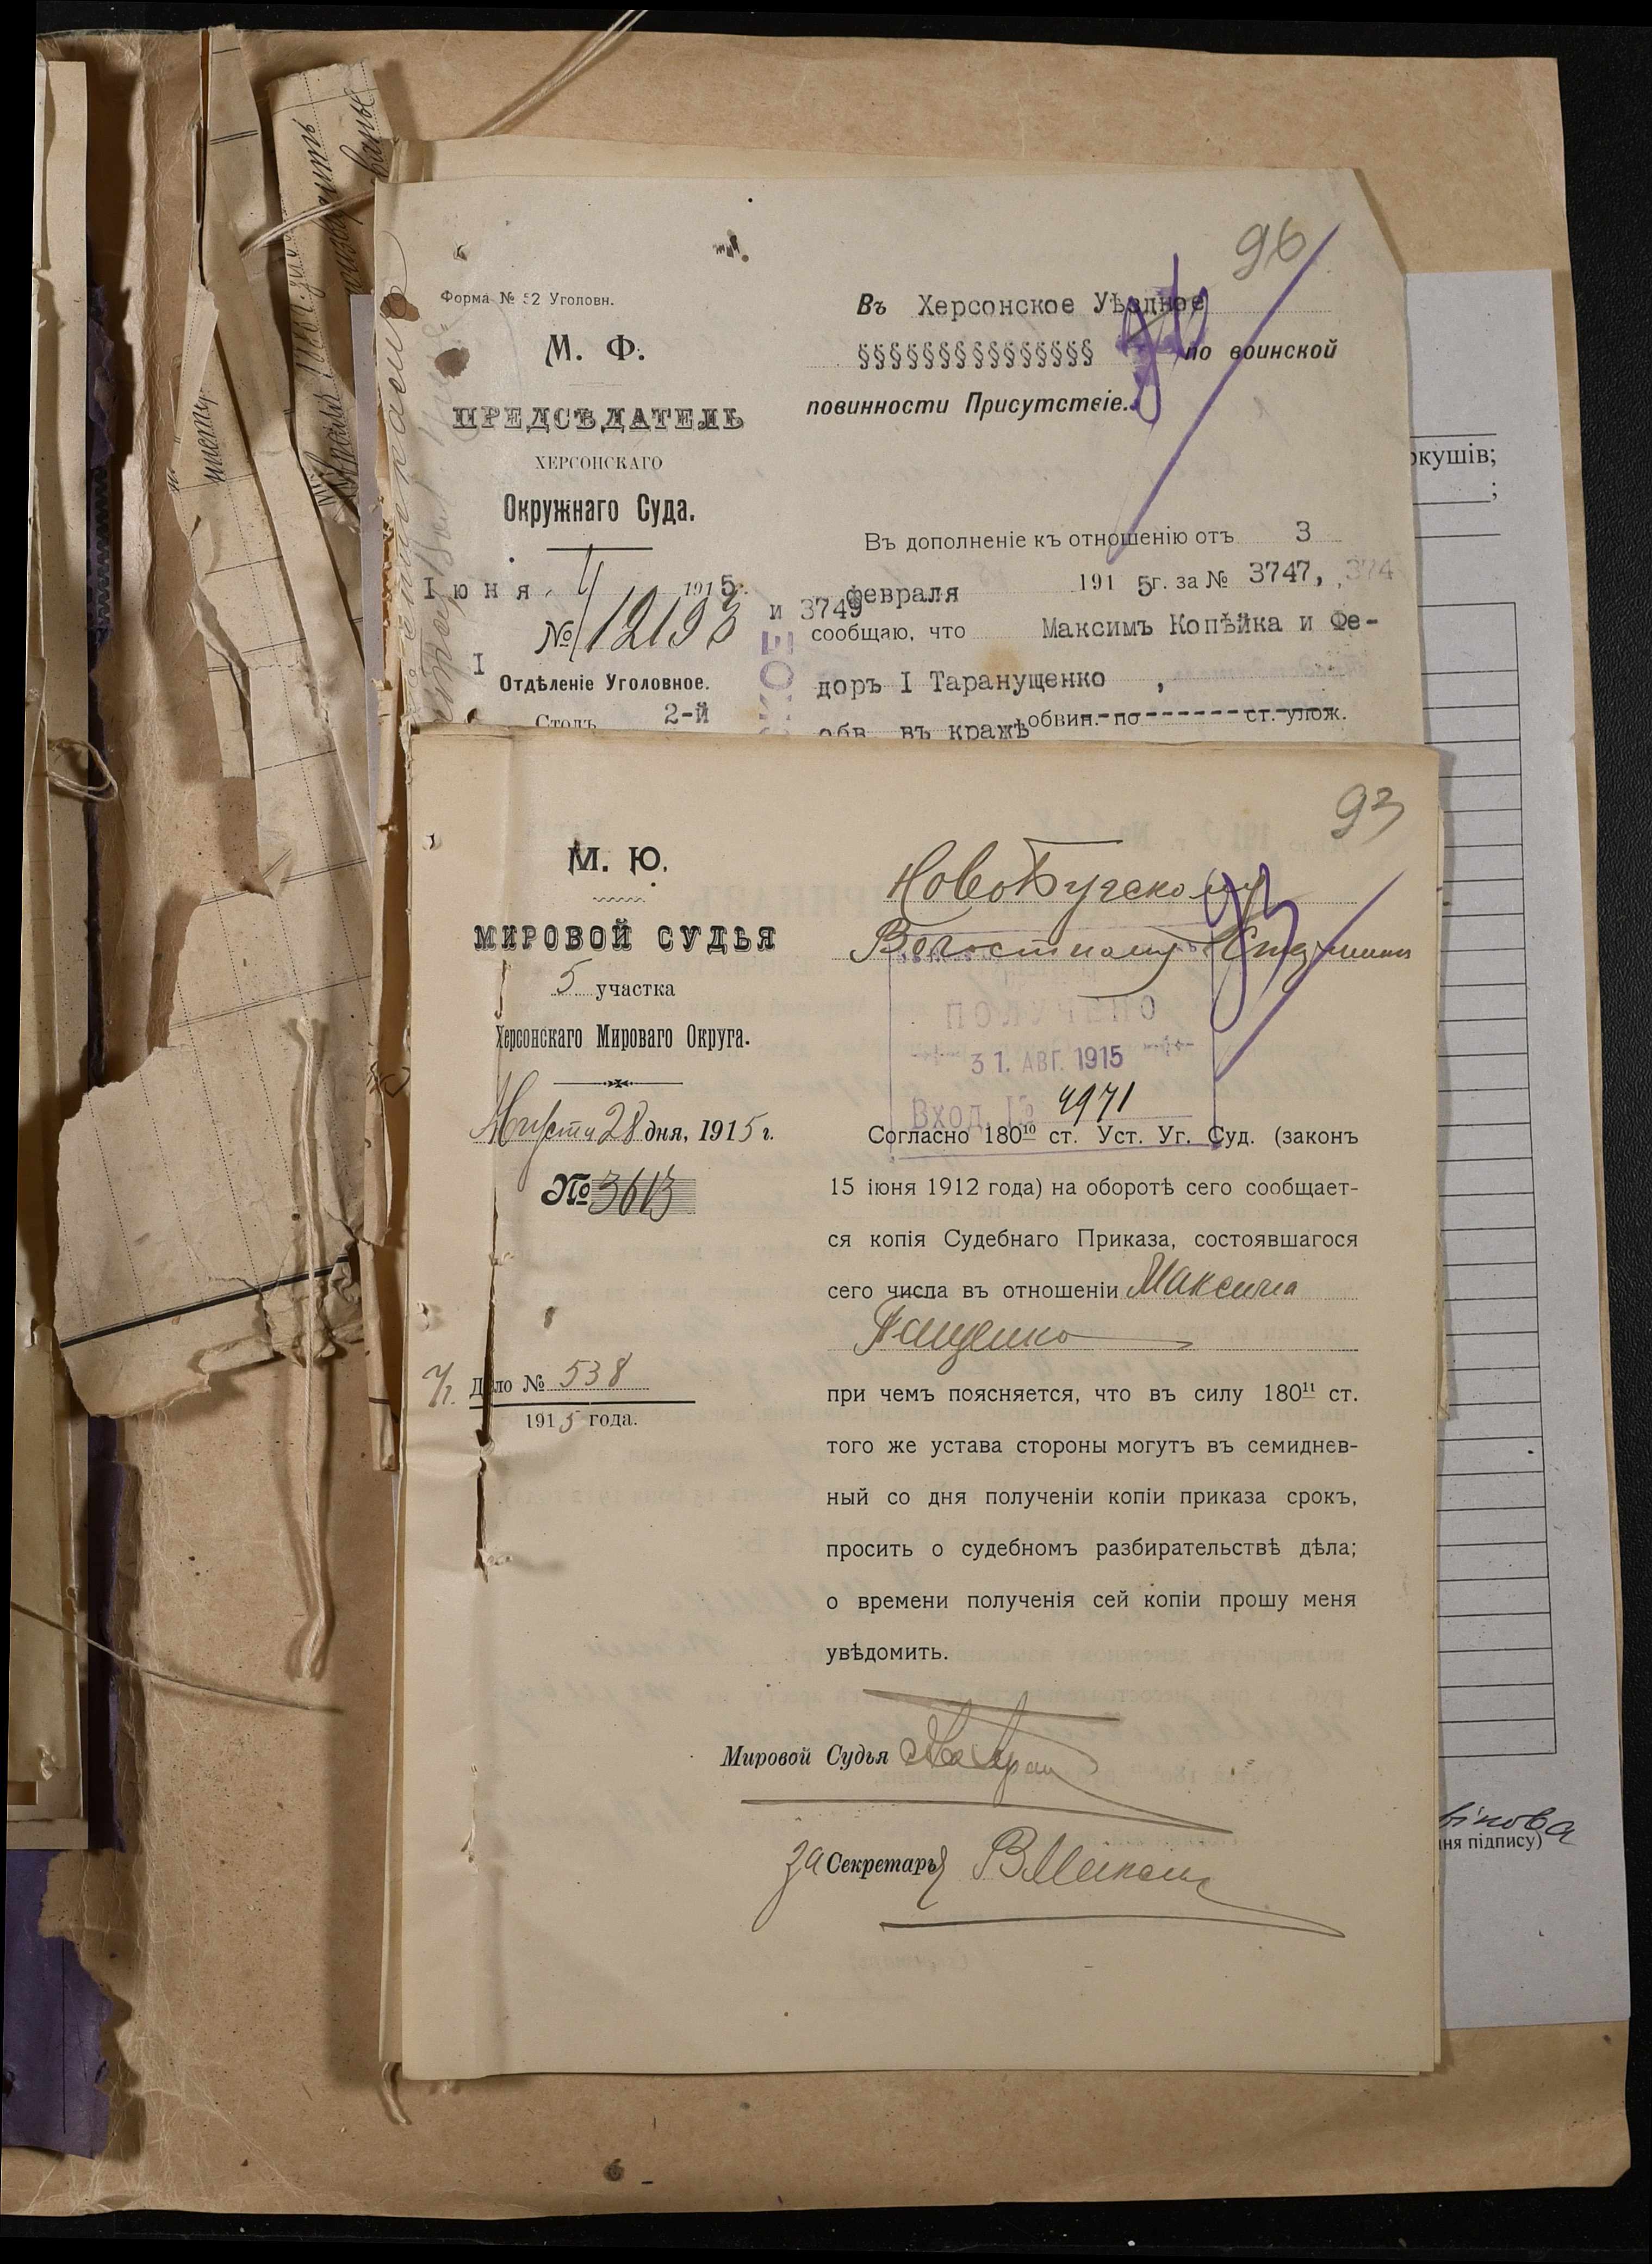 96
Форма № 52 Уголовн.
М. Ф.
ПРЕДСѢДАТЕЛЬ
ХЕРСОНСКАГО
Окружнаго Суда.
Іюня 4 1915.
№ 12193
I
Отдѣленіе Уголовное.
Столъ 2-й
Въ Херсонское Уѣздное
§§§§§§§§§§§§§§§ по воинской
повинности Присутствіе.
Въ дополненіе къ отношенію отъ 3
февраля 1915г. за № 3747, 374
и 3749
сообщаю, что Максимъ Копѣйка и Фе-
доръ I Таранущенко ,
обвин. по ст. улож.
обв. въ кражѣ
93
М. Ю.
МИРОВОЙ СУДЬЯ
5 участка
Херсонскаго Мироваго Округа.
Августа 28 дня, 1915 г.
№ 3613
Дѣло № 538
1915 года.
НовоБугскому
Волостному
93
ПОЛУЧЕНО
31. АВГ. 1915
Вход. № 4971
Согласно 180¹⁰ ст. Уст. Уг. Суд. (законъ
15 іюня 1912 года) на оборотѣ сего сообщает-
ся копія Судебнаго Приказа, состоявшагося
сего числа въ отношеніи Максима
Пащенко
при чемъ поясняется, что въ силу 180¹¹ ст.
того же устава стороны могутъ въ семиднев-
ный со дня полученіи копіи приказа срокъ,
просить о судебномъ разбирательствѣ дѣла;
о времени полученія сей копіи прошу меня
увѣдомить.
Мировой Судья
За Секретаря
ркушів;
;
ня підпису)